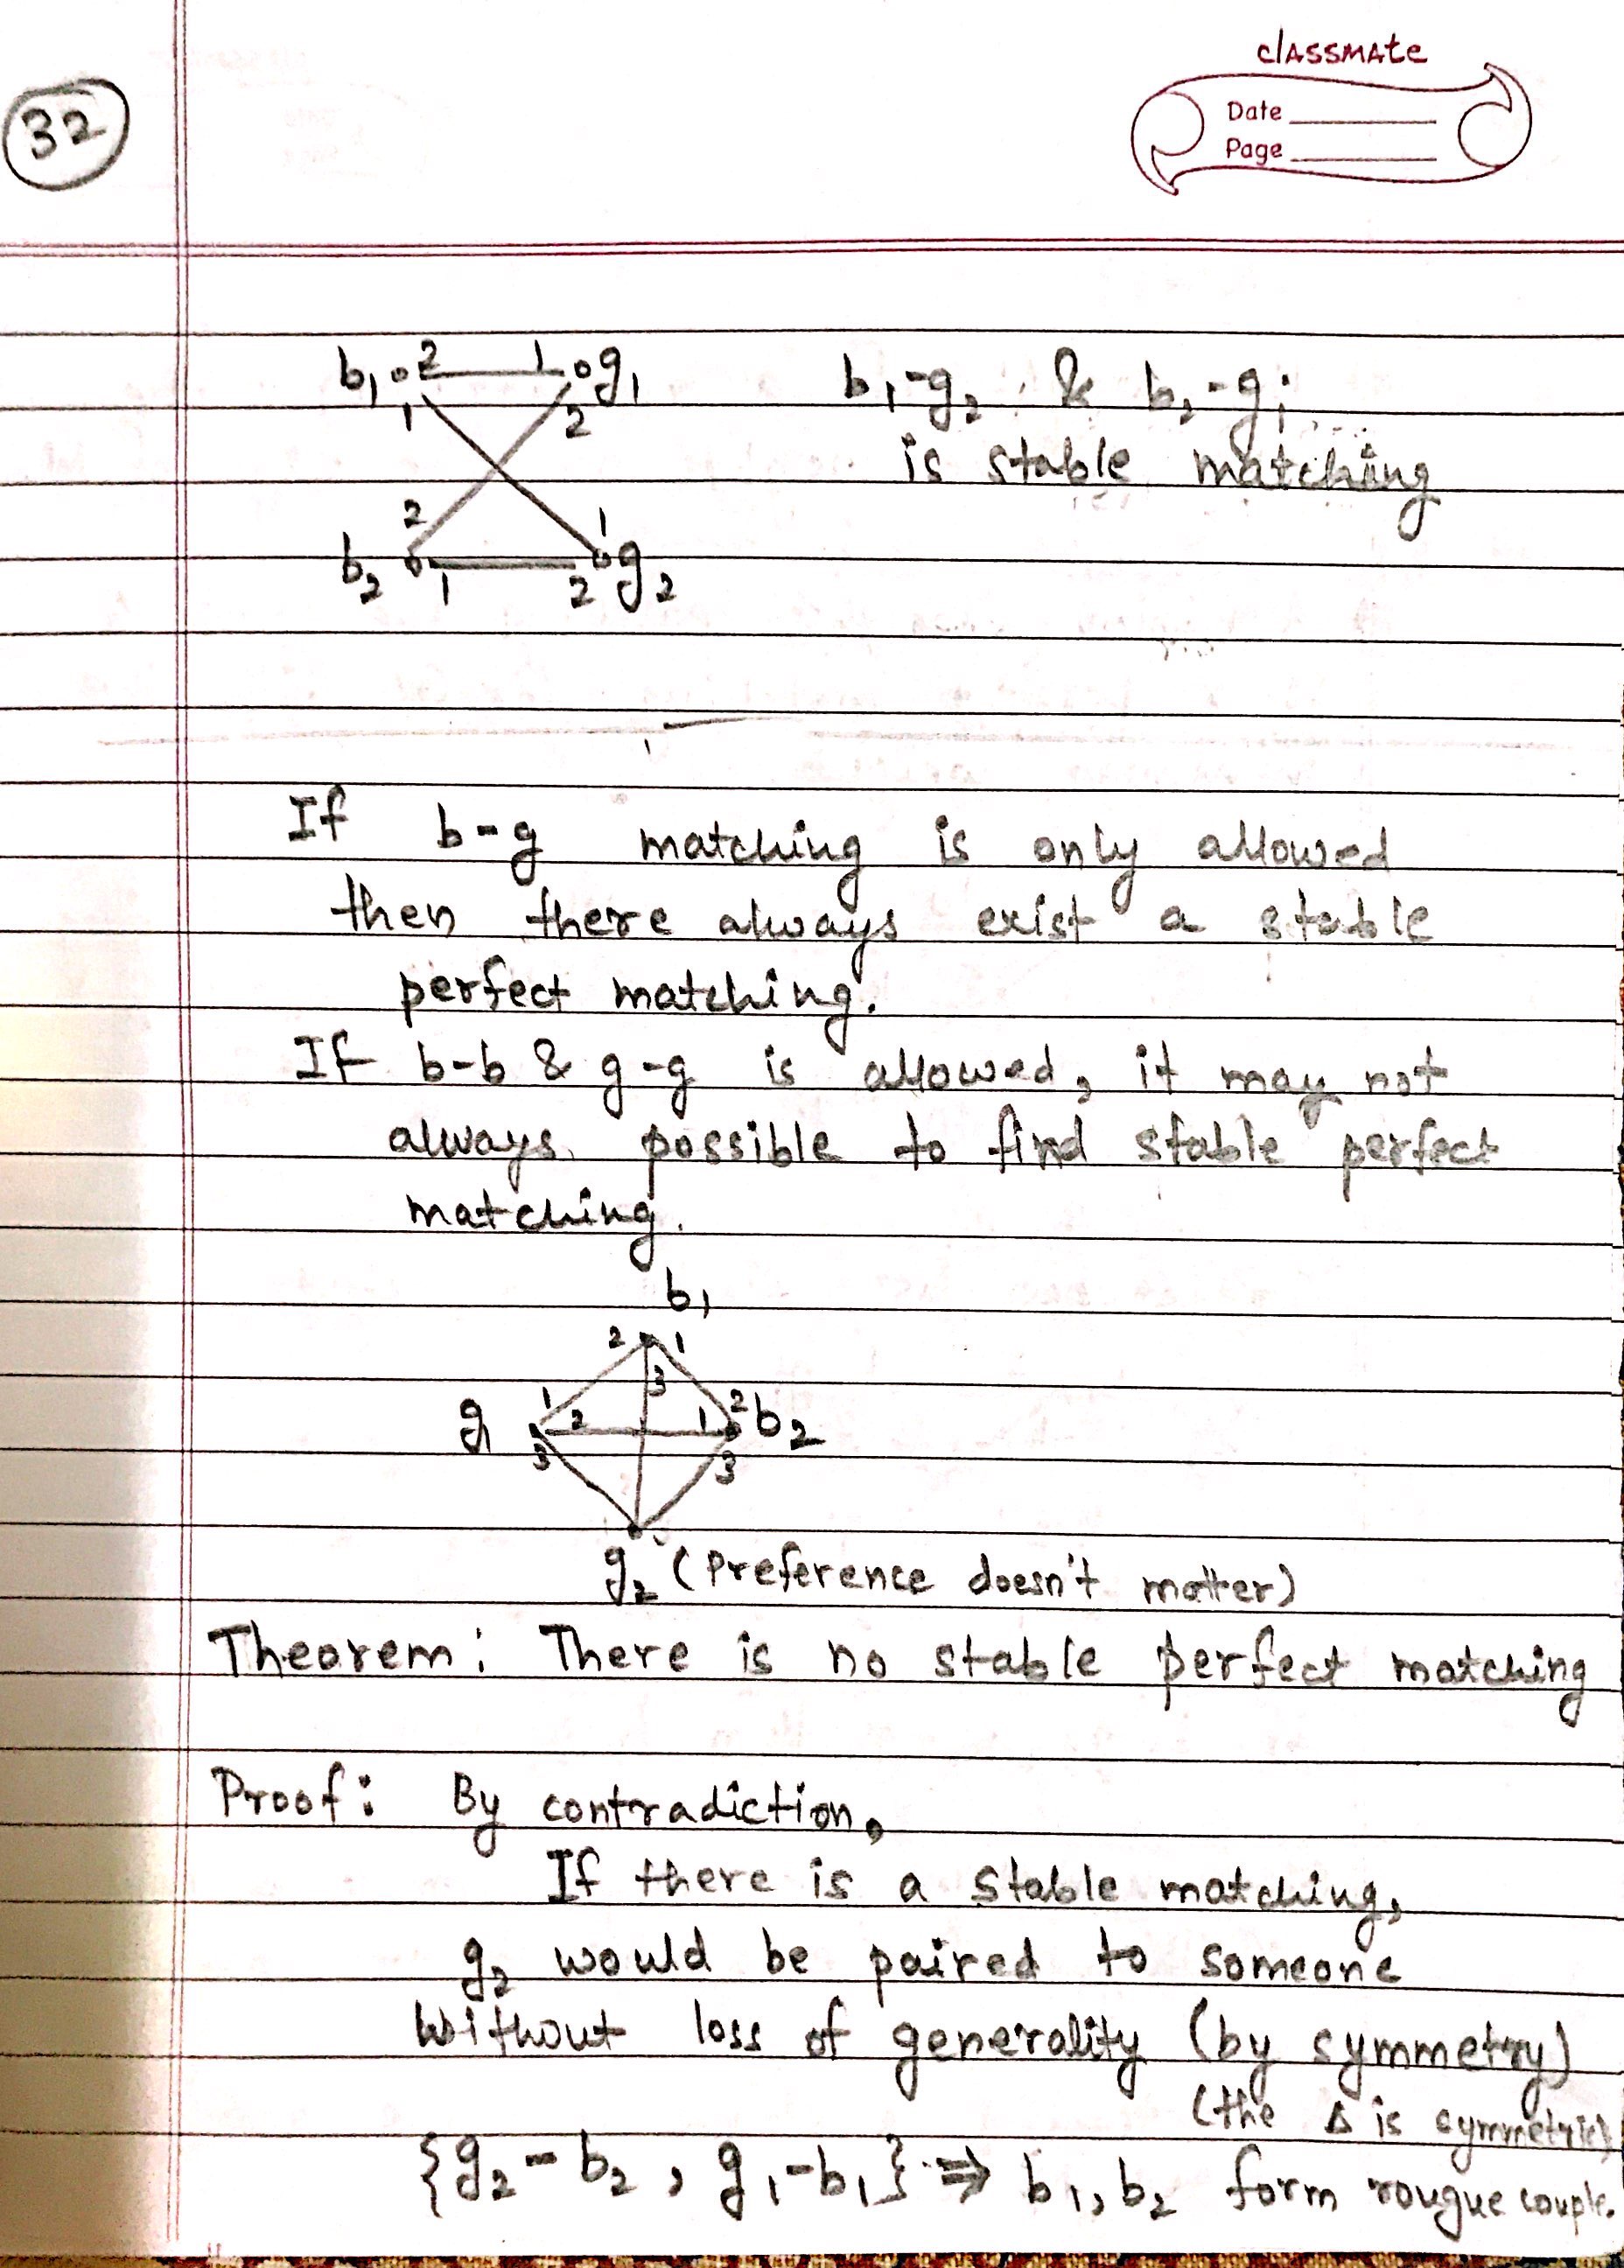 classmate
Date
Page
32
b₁ 2 1 g₁
1 2
b₁-g₂ & b₂-g₁
is stable matching
2 1
b₂ 1 2 g₂
If b-g matching is only allowed
then there always exist a stable
perfect matching.
If b-b & g-g is allowed, it may not
always possible to find stable perfect
matching.
b₁
2 1
3
g₁ 1 2 1 2 b₂
3 3
g₂ (Preference doesn't matter)
Theorem: There is no stable perfect matching
Proof: By contradiction,
If there is a stable matching,
g₂ would be paired to someone
Without loss of generality (by symmetry)
(the Δ is symmetric)
{g₂-b₂, g₁-b₁} ⇒ b₁, b₂ form rougue couple.